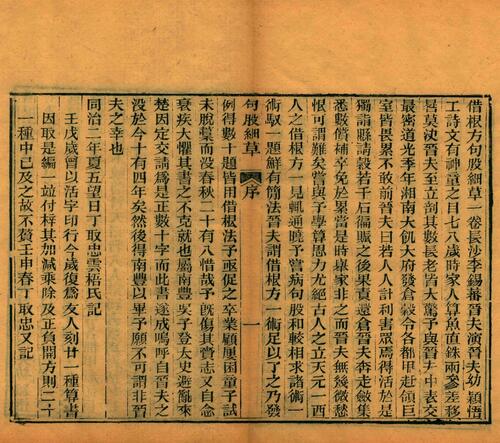 借根方句股細草一卷長沙李錫蕃晉夫演晉夫幼穎悟
工詩文有神童之目七八歲時家人算魚直銖兩參差移
晷莫決晉夫至立剖其數長老皆大驚予與晉夫中表交
最密道光季年湘南大飢大府發倉穀令各都甲赴領巨
室皆畏累不敢前晉夫曰若計利害眾焉得活於是
獨詣縣請穀若干石徧賑之後果責還倉晉夫奔走斂集
悉數償補卒免於累當是時舉家非之而晉夫無幾微愁
恨可謂難矣嘗與予學算思力尤絕古人之立天元一西
人之借根方一見輒通曉予嘗病句股和較相求諸術一
術馭一題鮮有簡法晉夫謂借根方一術足以了之乃發
句股細草 序 一
例得數十題皆用借根法予亟促之卒業顧屢困童子試
未脫稾而没春秋二十有八惜哉予旣傷其賫志又自念
衰疾大懼其書之不克就也屬南豐吳子登太史避亂來
楚因定交請成是正數十字而此書遂成嗚呼自晉夫之
没於今十有四年矣然後得南豐以畢予願不可謂非晉
夫之幸也
同治二年夏五望日丁取忠雲梧氏記
壬戌歲曾以活字印行今歲復爲友人刻廿一種算書
因取是編一竝付梓其加減乘除及正負開方則二十
一種中已及之故不贅壬申春丁取忠又記